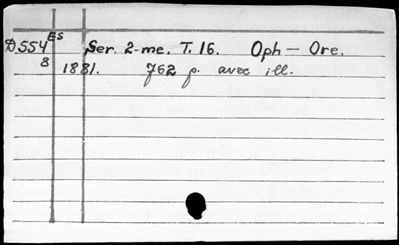 D554 ES Ser. 2-me. T. 16. Oph — Ore.
8 1881. 762 p. avec ill.